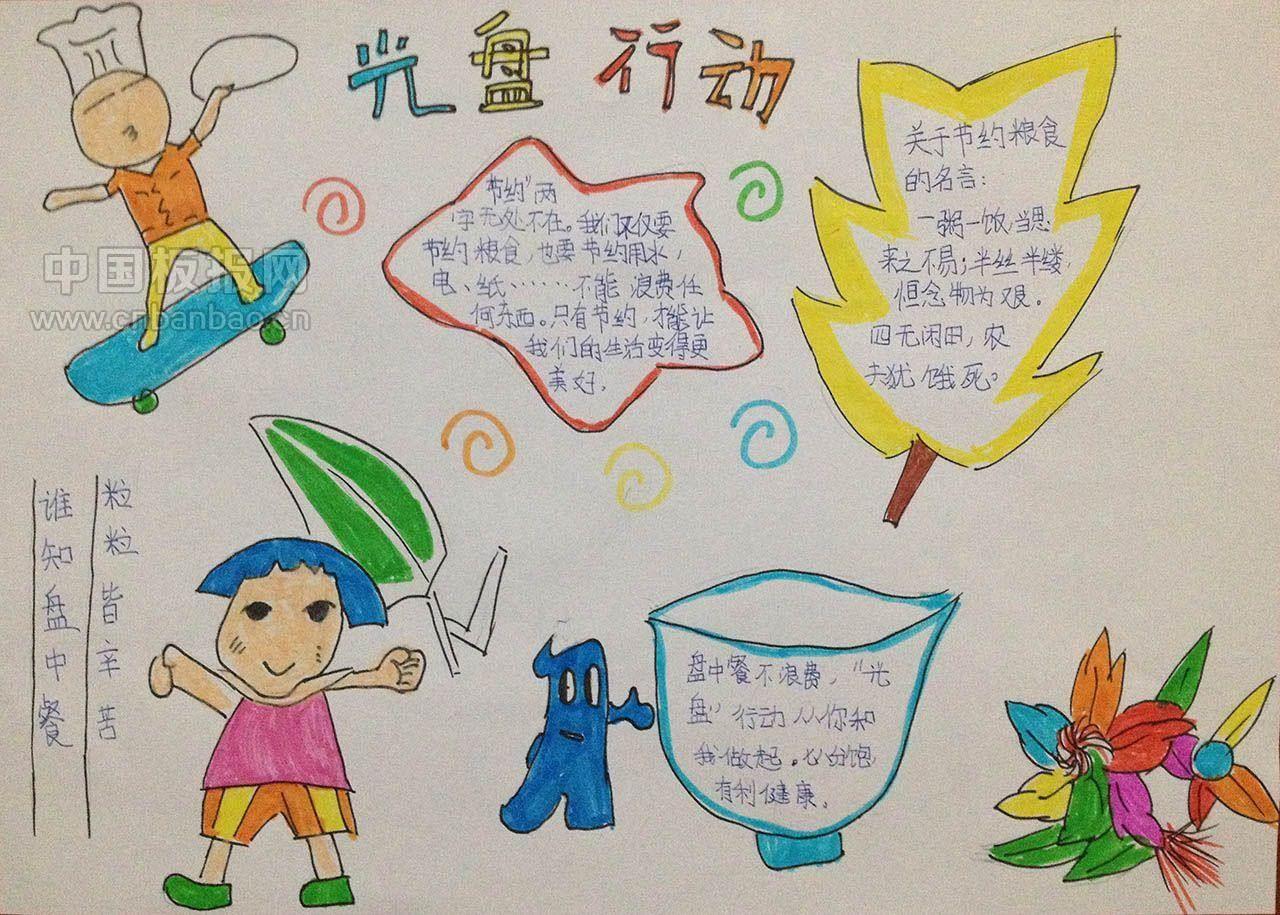 光盘行动
中国板报网
www.cnbanbao.cn
节约"两
字无处不在。我们不仅要
节约粮食,也要节约用水,
电、纸……不能浪费任
何东西。只有节约,才能让
我们的生活变得更
美好。
关于节约粮食
的名言:
一粥一饮,当思
来之不易;半丝半缕,
但念物为艰。
四无闲田,农
夫犹饿死。
谁知盘中餐
粒粒皆辛苦
盘中餐不浪费,"光
盘"行动从你和
我做起。分饱,
有利健康。